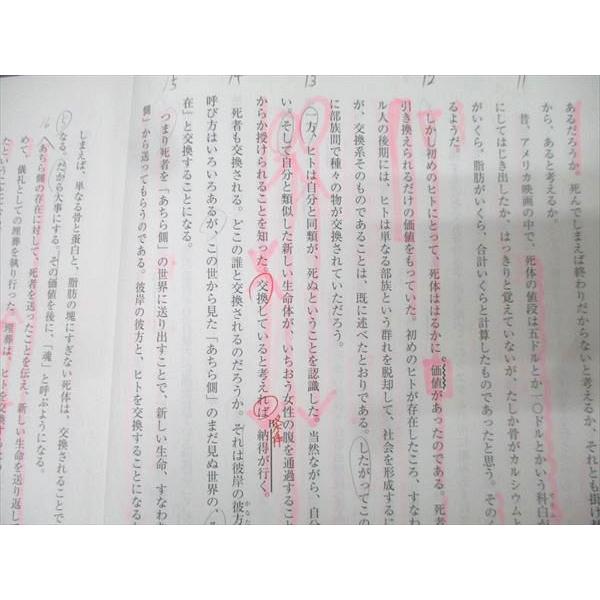 11
あるだろうか。死んでしまえば終わりだからないと考えるか、それとも掛け
から、あると考えるか。
昔、アメリカ映画の中で、死体の値段は五ドルとか一〇ドルとかいう科白が
にしてはじき出したか、はっきりと覚えていないが、たしか骨がカルシウムと
がいくら、脂肪がいくら、合計いくらと計算したものであったと思う。そのく
るようだ。
12
しかし初めのヒトにとって、死体ははるかに価値があったのである。死者
引き換えられるだけの価値をもっていた。初めのヒトが存在したころ、すなわち
ル人の後期には、ヒトは単なる部族という群れを脱却して、社会を形成するに
が、交換系そのものであることは、既に述べたとおりである。したがってこの
に部族間で種々の物が交換されていただろう。
13
一方、ヒトは自分と同類が、死ぬということを認識した。当然ながら、自分
い。そして自分と類似した新しい生命体が、いちおう女性の腹を通過すること
からか授けられることを知った。交換していると考えれば、納得が行く。
14
死者も交換される。どこの誰と交換されるのだろうか。それは彼岸の彼方
かなた
呼び方はいろいろあるが、この世から見た「あちら側」のまだ見ぬ世界の、
在」と交換することになる。
15
つまり死者を「あちら側」の世界に送り出すことで、新しい生命、すなわち
側」から送ってもらうのである。彼岸の彼方と、ヒトを交換することになる
しまえば、単なる骨と蛋白と、脂肪の塊にすぎない死体は、交換されることで
となる。だから大事にする。その価値を後に、「魂」と呼ぶようになる。
16
あちら側の存在に対して、死者を送ったことを伝え、新しい生命を送り返して
めて、儀礼としての埋葬を執り行った。埋葬は、ヒトを交換する